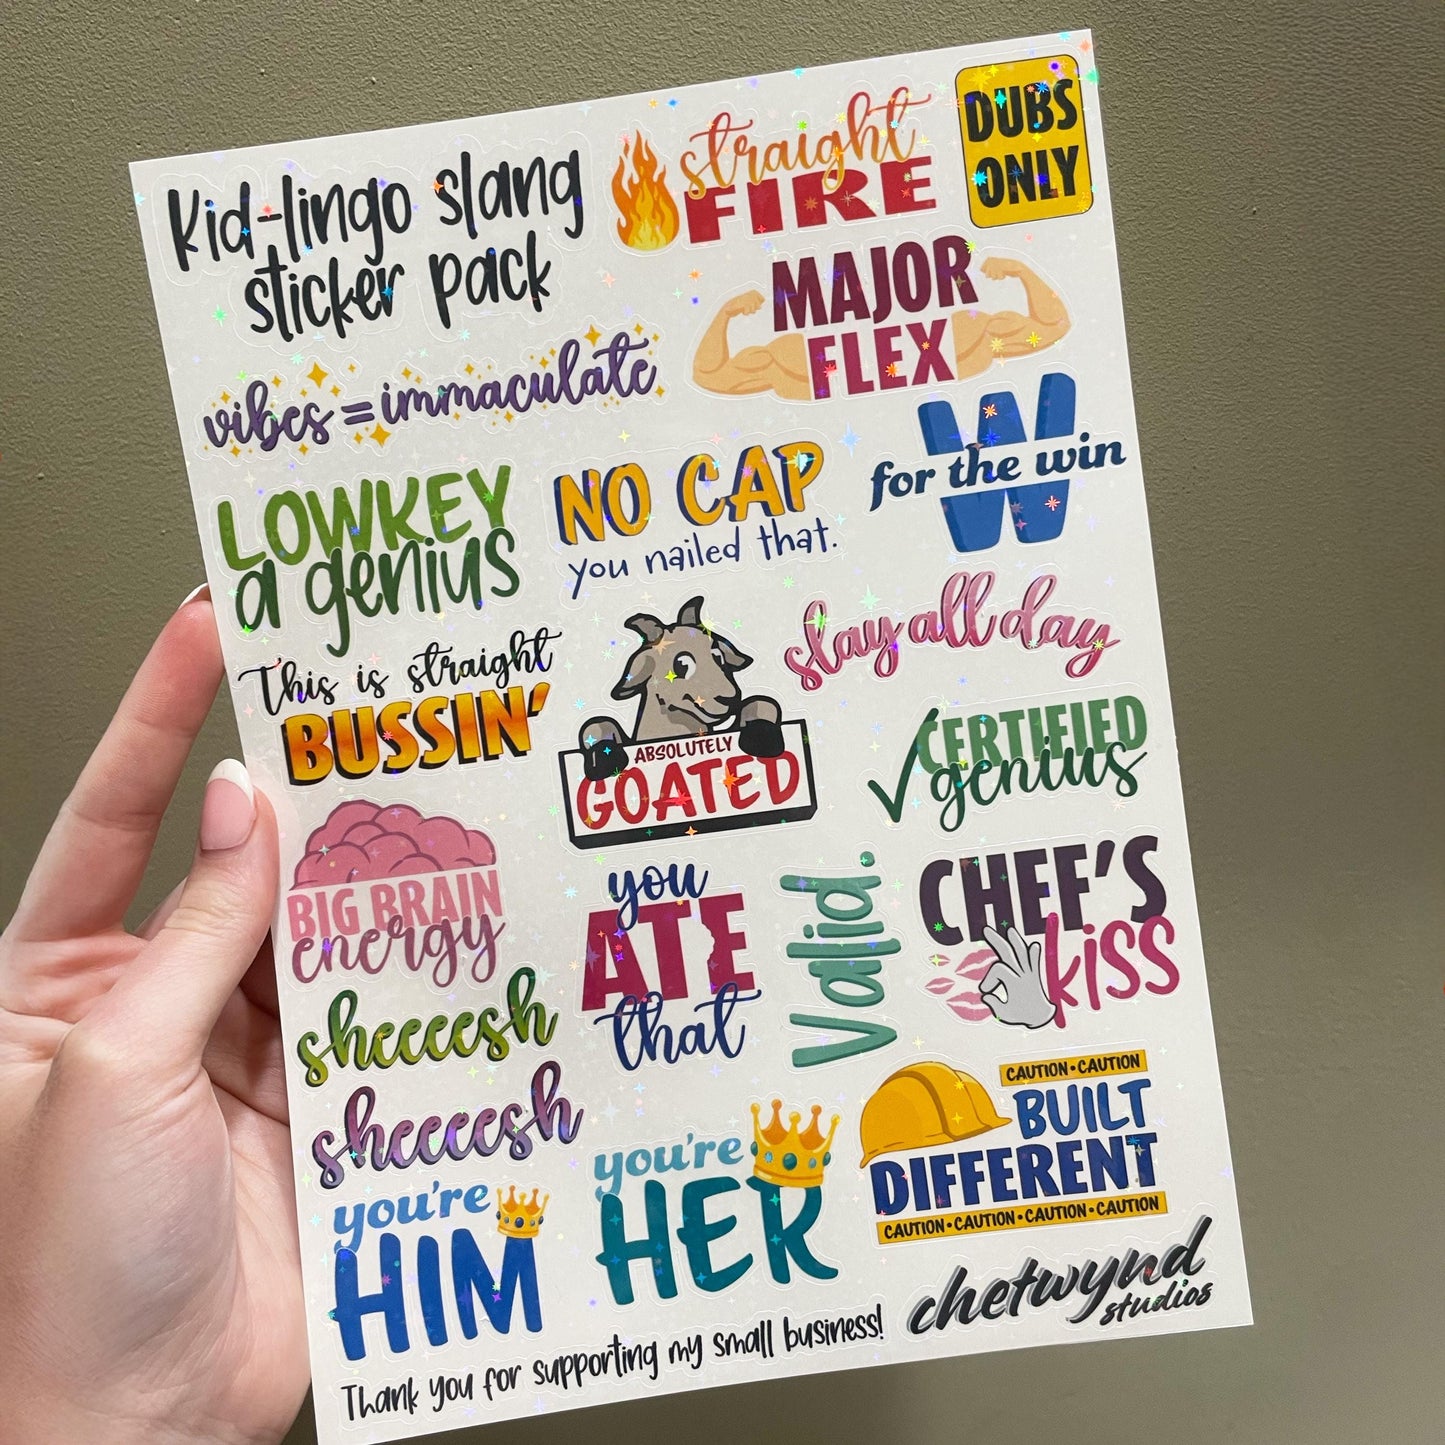 Kid-lingo slang
sticker pack
straight
FIRE
DUBS
ONLY
MAJOR
FLEX
vibes = immaculate
LOWKEY
a genius
NO CAP
you nailed that.
W
for the win
This is straight
BUSSIN'
ABSOLUTELY
GOATED
slay all day
CERTIFIED
genius
BIG BRAIN
energy
you
ATE
that
Valid.
CHEF'S
kiss
sheeeesh
sheeeesh
you're
HIM
you're
HER
CAUTION • CAUTION
BUILT
DIFFERENT
CAUTION • CAUTION • CAUTION • CAUTION
chetwynd
studios
Thank you for supporting my small business!